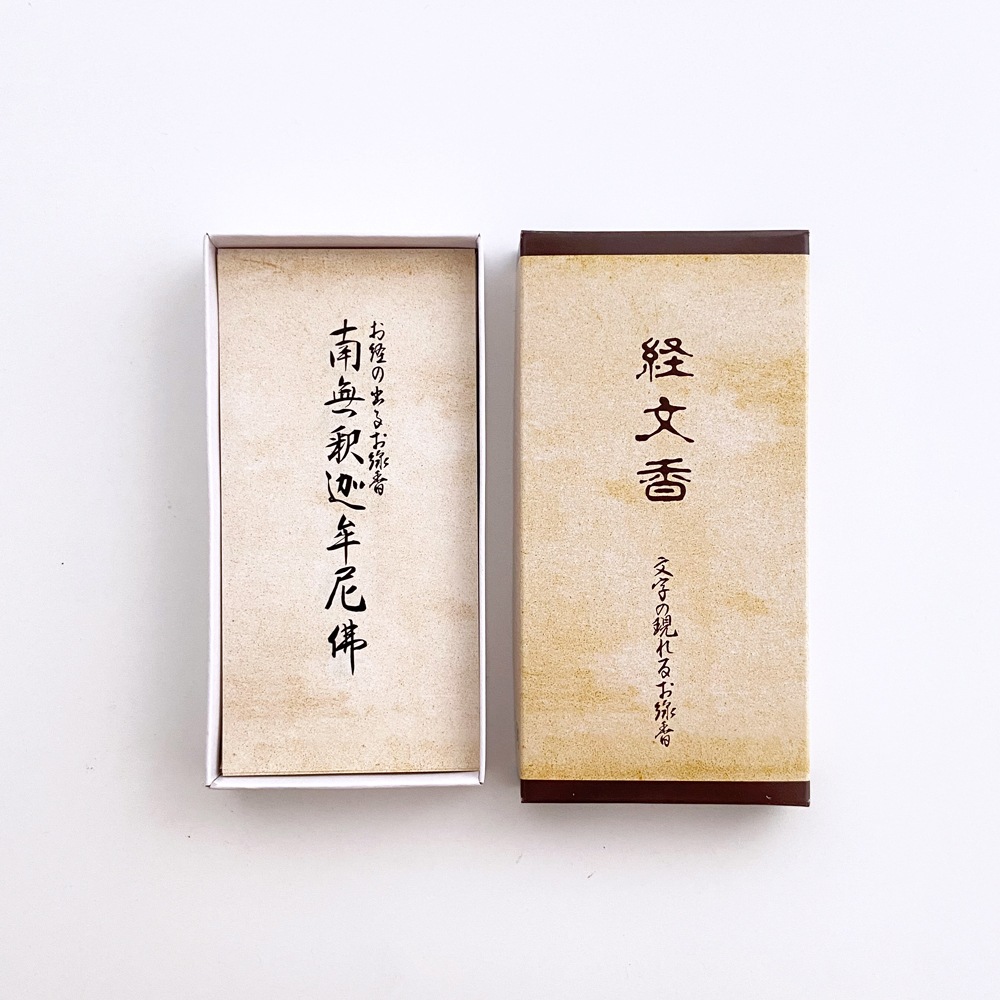 お経の出るお線香
南無釈迦牟尼佛
経文香
文字の現れるお線香